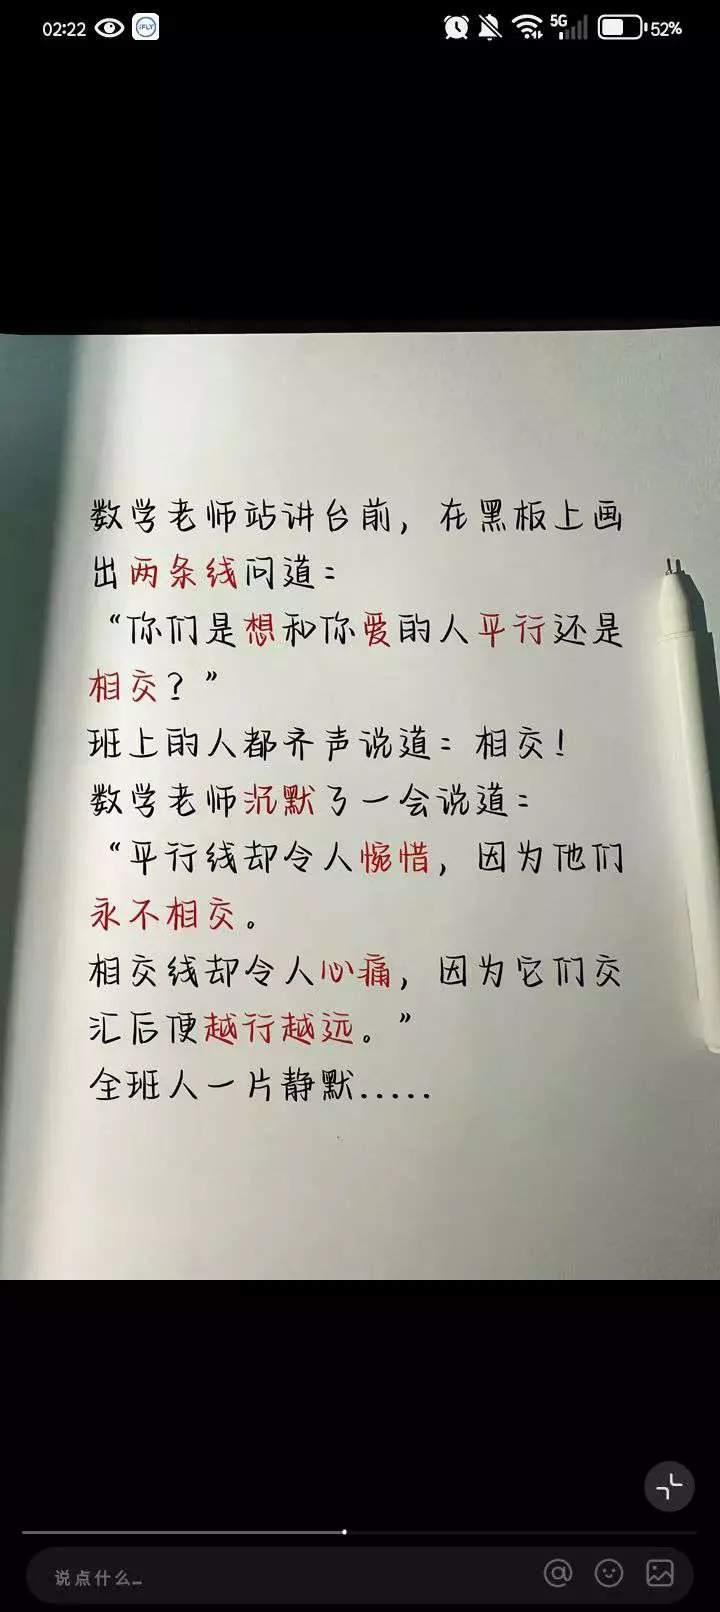 02:22
iFLY
5G
52%
数学老师站讲台前，在黑板上画
出两条线问道：
“你们是想和你爱的人平行还是
相交？”
班上的人都齐声说道：相交！
数学老师沉默了一会说道：
“平行线却令人惋惜，因为他们
永不相交。
相交线却令人心痛，因为它们交
汇后便越行越远。”
全班人一片静默.....
说点什么...